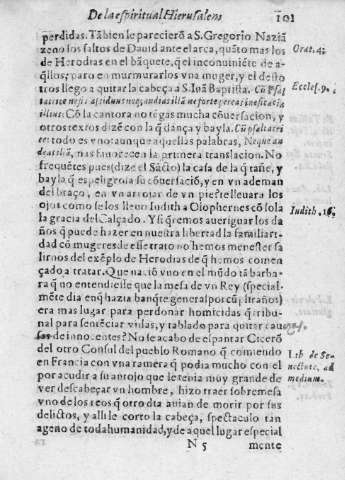 De la espiritual Hierusalem 101
perdidas. Tãbien le pareciero̅ a S. Gregorio Naziã
zeno los saltos de Dauid ante el arca, quãto mas los Orat. 4.
de Herodias en el bãquete, q el inconuiniẽte de a-
qllos; paro en murmurarlos vna muger, y el desto
tros llego a quitar la cabeça a S. Iuã Baptista. Cũ Psal Eccles. 9.
tatrice ne sis assiduus neq; audias illã ne forte pereas in efficacia
illius: Cõ la cantora no tẽgas mucha cõuersacion, y
otros textos dizẽ con la q dança y bayla. Cũ psaltatri
ce: todo es vno: aunque aquellas palabras, Neque au
dias illã, mas fauorecen la primera translacion. No
frequẽtes pues (dize el Sãcto) la casa de la q tañe, y
bayla, q es peligrosa su cõuersaciõ, y en vn ademan
del braço, en vn arrojar de vn pie te lleuara los
ojos como se los lleuo Iudith a Olophernes cõ sola Iudith. 16.
la gracia del Calçado. Y si q̃remos aueriguar los da
ños q puede hazer en nuestra libertad la familiari-
dad cõ mugeres de esse trato no hemos menester sa
lirnos del exẽplo de Herodias de q hemos comen
çado a tratar. Que naciõ vuo en el mũdo tã barba-
ra q no entendiesse que la mesa de vn Rey (special-
mẽte dia en q hazia bãq̃te general por cũpleaños)
era mas lugar para perdonar homicidas q tribu-
nal para sentẽciar vidas, y tablado para quitar cau
sas de innocentes? No se acabo de espantar Cicerõ
del otro Consul del pueblo Romano q comiendo Lib. de Se-
en Francia con vna ramera q podia mucho con el nectute, ad
por acudir a su antojo que le tenia muy grande de medium.
ver descabeçar vn hombre, hizo traer sobremesa
vno de los reos q otro dia auian de morir por sus
delictos, y alli le corto la cabeça, spectaculo tan
ageno de toda humanidad, y de aquel lugar especial
N 5 mente